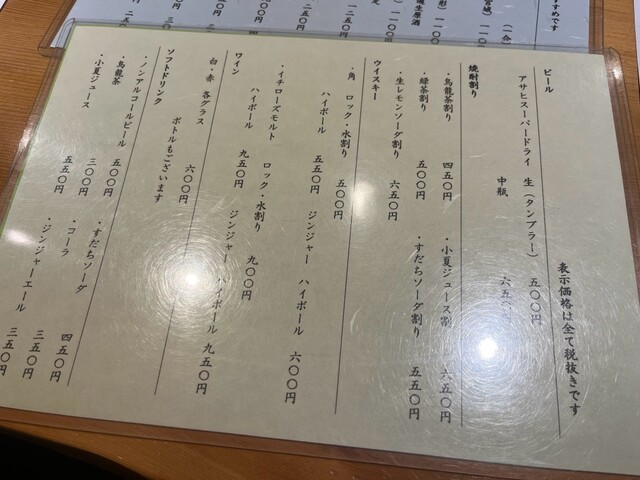 表示価格は全て税抜きです
ビール
アサヒスーパードライ 生(タンブラー) 五〇〇円
中瓶 六五〇円
焼酎割り
・烏龍茶割り 四五〇円 ・小夏ジュース割 六五〇円
・緑茶割り 五〇〇円 ・すだちソーダ割り 五五〇円
・生レモンソーダ割り 六五〇円
ウイスキー
・角 ロック・水割り 五〇〇円
ハイボール 五五〇円 ジンジャーハイボール 六〇〇円
・イチローズモルト ロック・水割り 九〇〇円
ハイボール 九五〇円 ジンジャーハイボール 九五〇円
ワイン
白・赤 各グラス 六〇〇円
ボトルもございます
ソフトドリンク
・ノンアルコールビール 五〇〇円 ・すだちソーダ 四五〇円
・烏龍茶 三〇〇円 ・コーラ 三五〇円
・小夏ジュース 五五〇円 ・ジンジャーエール 三五〇円